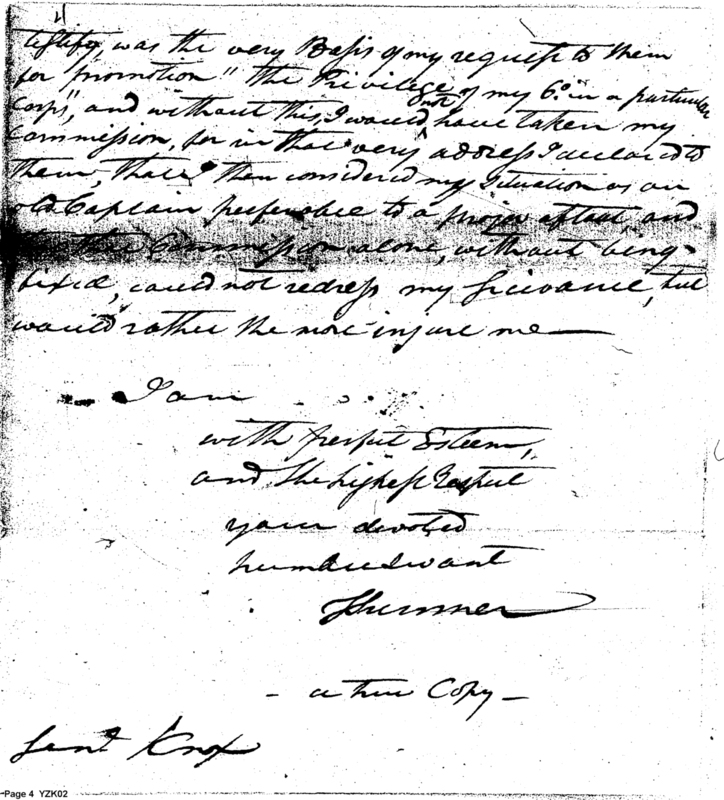 testify, was the very Basis of my request to them
for promotion "the Privilege of my 6o. in a particular
Corps", and without this, I would not have taken my
Commission, for in that very address I declared to
them, that I then considered my Situation as an
old Captain preferable to a Major and
the Commission alone, without being
fixed, could not redress my Grievance, but
would rather the more injure me
I am
with perfect Esteem,
and the highest Respect
your devoted
humble Servant
- a true Copy -
Genl Knox
Page 4 YZK02